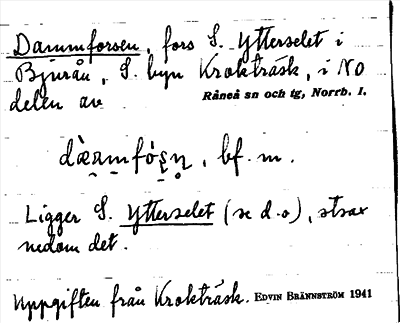 Dammforsen, fors S. Ytterselet i
Bjurån, S. byn Krokträsk, i NO
delen av Råneå sn och tg, Norrb. l.
dæ̀a̠m̠fȯṣn̥, bf. m.
Ligger S. Ytterselet (se d.o), strax
nedom det.
Uppgiften från Krokträsk. EDVIN BRÄNNSTRÖM 1941